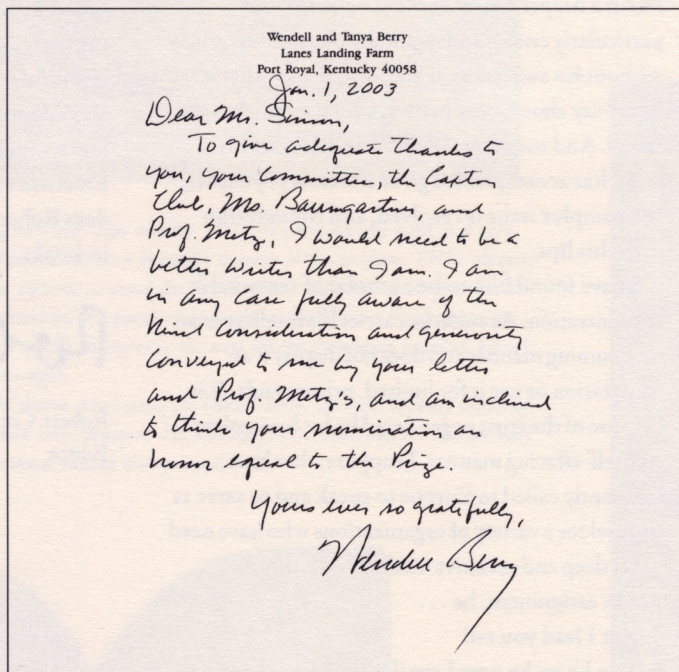 Wendell and Tanya Berry
Lanes Landing Farm
Port Royal, Kentucky 40058
Jan. 1, 2003
Dear Mr. Simon,
To give adequate thanks to
you, your Committee, the Caxton
Club, Ms. Baumgartner, and
Prof. Metz, I would need to be a
better writer than I am. I am
in any case fully aware of the
kind consideration and generosity
conveyed to me by your letter
and Prof. Metz's, and am inclined
to think your nomination an
honor equal to the Prize.
Yours ever so gratefully,
Wendell Berry